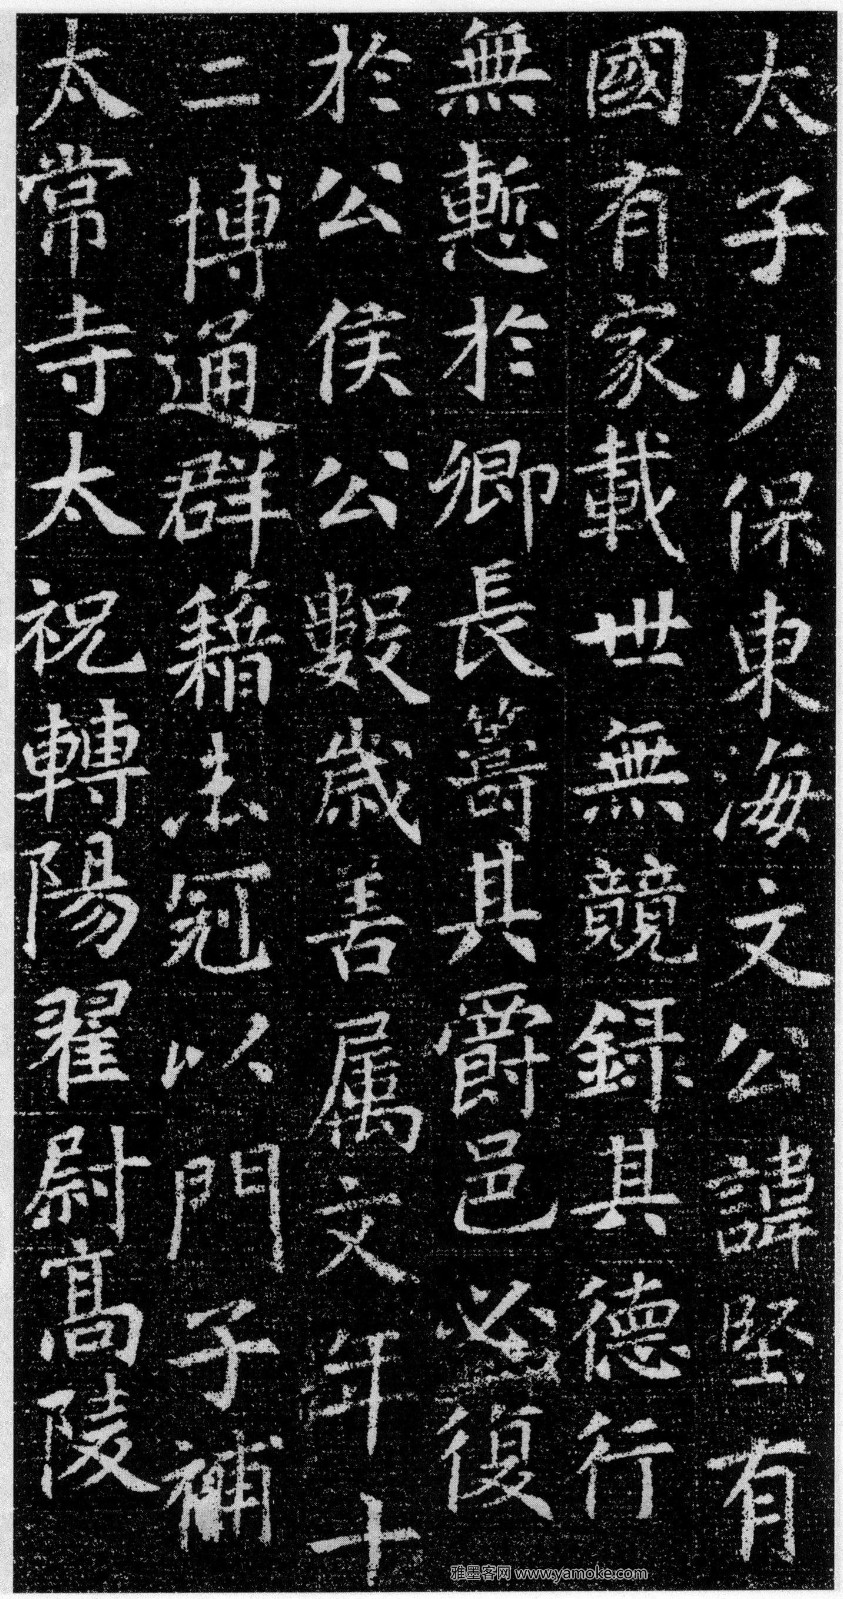 太子少保東海文公諱堅有
國有家載世無競録其德行
無慙於卿長籌其爵邑必復
於公侯公數歲善属文年十
二博通群籍未冠以門子補
太常寺太祝轉陽翟尉高陵
雅墨客网 www.yamoke.com